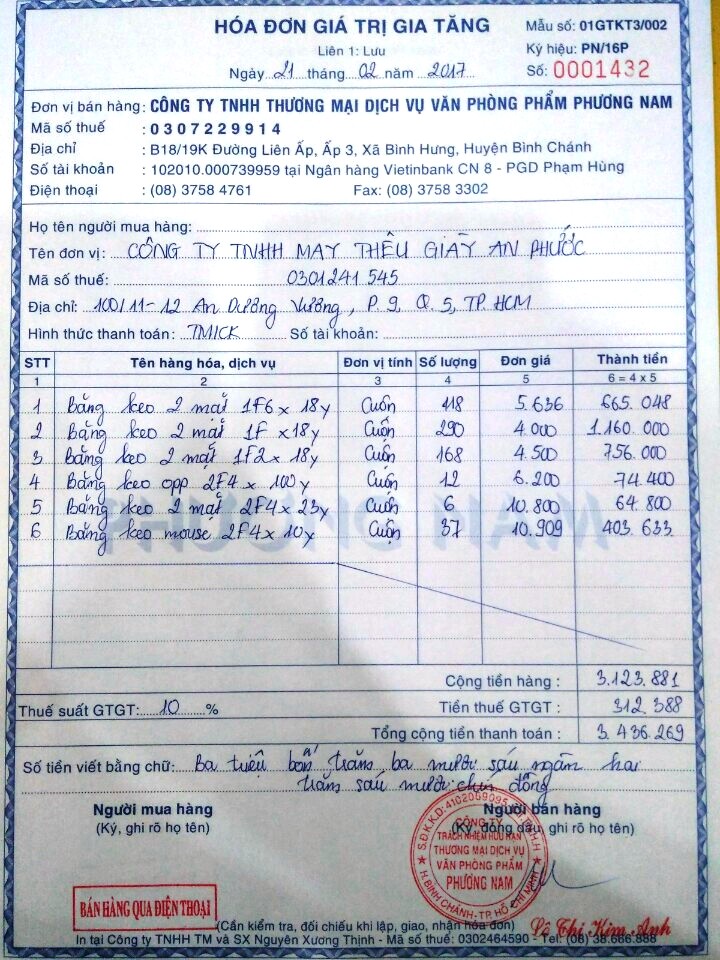 HÓA ĐƠN GIÁ TRỊ GIA TĂNG
Mẫu số: 01GTKT3/002
Liên 1: Lưu
Ký hiệu: PN/16P
Ngày 21 tháng 02 năm 2017
Số: 0001432
Đơn vị bán hàng: CÔNG TY TNHH THƯƠNG MẠI DỊCH VỤ VĂN PHÒNG PHẨM PHƯƠNG NAM
Mã số thuế : 0307229914
Địa chỉ : B18/19K Đường Liên Ấp, Ấp 3, Xã Bình Hưng, Huyện Bình Chánh
Số tài khoản : 102010.000739959 tại Ngân hàng Vietinbank CN 8 - PGD Phạm Hùng
Điện thoại : (08) 3758 4761 Fax: (08) 3758 3302
Họ tên người mua hàng:
Tên đơn vị: CÔNG TY TNHH MAY THÊU GIÀY AN PHƯỚC
Mã số thuế: 0301241545
Địa chỉ: 100/11-12 An Dương Vương, P.9, Q.5, TP.HCM
Hình thức thanh toán: TM/CK Số tài khoản:
STT Tên hàng hóa, dịch vụ Đơn vị tính Số lượng Đơn giá Thành tiền
1 2 3 4 5 6 = 4 x 5
1 Băng keo 2 mặt 1F6 x 18y Cuốn 118 5.636 665.048
2 Băng keo 2 mặt 1F x 18y Cuốn 290 4.000 1.160.000
3 Băng keo 2 mặt 1F2 x 18y Cuốn 168 4.500 756.000
4 Băng keo opp 2F4 x 100y Cuốn 12 6.200 74.400
5 Băng keo 2 mặt 2F4 x 23y Cuốn 6 10.800 64.800
6 Băng keo mouse 2F4 x 10y Cuộn 37 10.909 403.633
PHƯƠNG NAM
Cộng tiền hàng : 3.123.881
Thuế suất GTGT: 10 % Tiền thuế GTGT : 312.388
Tổng cộng tiền thanh toán : 3.436.269
Số tiền viết bằng chữ: Ba triệu bốn trăm ba mươi sáu ngàn hai
trăm sáu mươi chín đồng
Người mua hàng Người bán hàng
(Ký, ghi rõ họ tên) (Ký, đóng dấu, ghi rõ họ tên)
S.Đ.K.K.D:4102059095
CÔNG TY
TRÁCH NHIỆM HỮU HẠN
THƯƠNG MẠI DỊCH VỤ
VĂN PHÒNG PHẨM
PHƯƠNG NAM
H.BÌNH CHÁNH-TP.HỒ CHÍ MINH
BÁN HÀNG QUA ĐIỆN THOẠI
Lê Thị Kim Anh
(Cần kiểm tra, đối chiếu khi lập, giao, nhận hóa đơn)
In tại Công ty TNHH TM và SX Nguyên Xương Thịnh - Mã số thuế: 0302464590 - Tel: (08) 38.666.888